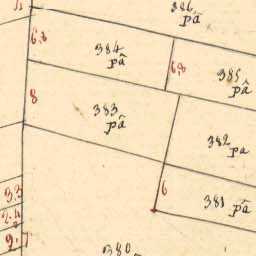 386
pâ
6,8
384
pâ
6,8
385
pâ
8
383
pâ
382
pa
6
381
pâ
380